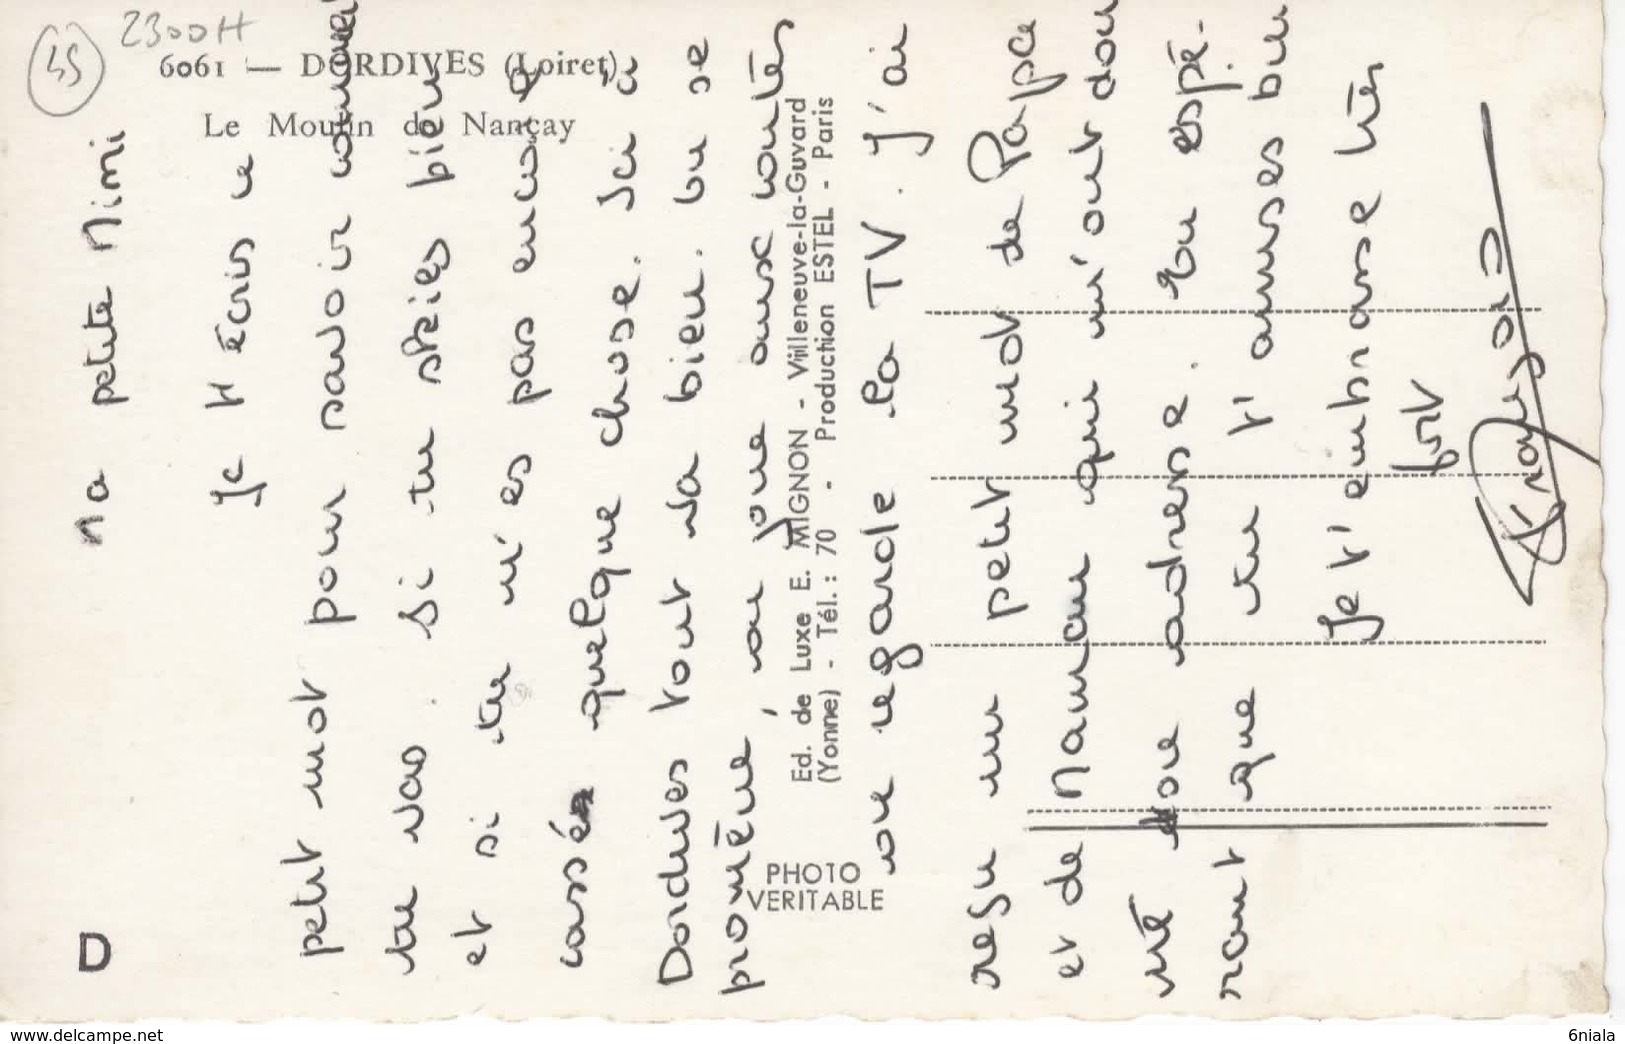 45
2300H
6061 — DORDIVES (Loiret)
Le Moulin de Nançay
D
PHOTO
VERITABLE
Ed. de Luxe E. MIGNON - Villeneuve-la-Guyard
(Yonne) - Tél. : 70 - Production ESTEL - Paris
Ma petite Mimi
Je t'écris ce
petit mot pour savoir comment
tu vas. Si tu skies bien
et si tu n'es pas encore
cassée quelque chose. Ici à
Dordives tout va bien. on se
promène, on joue aux contes
on regarde la TV. J'ai
reçu un petit mot de Pappa
et de Maman qui m'ont don
né ton adresse. En espé-
rant que tu t'amuses bien
Je t'embrasse très
fort
www.delcampe.net
6niala